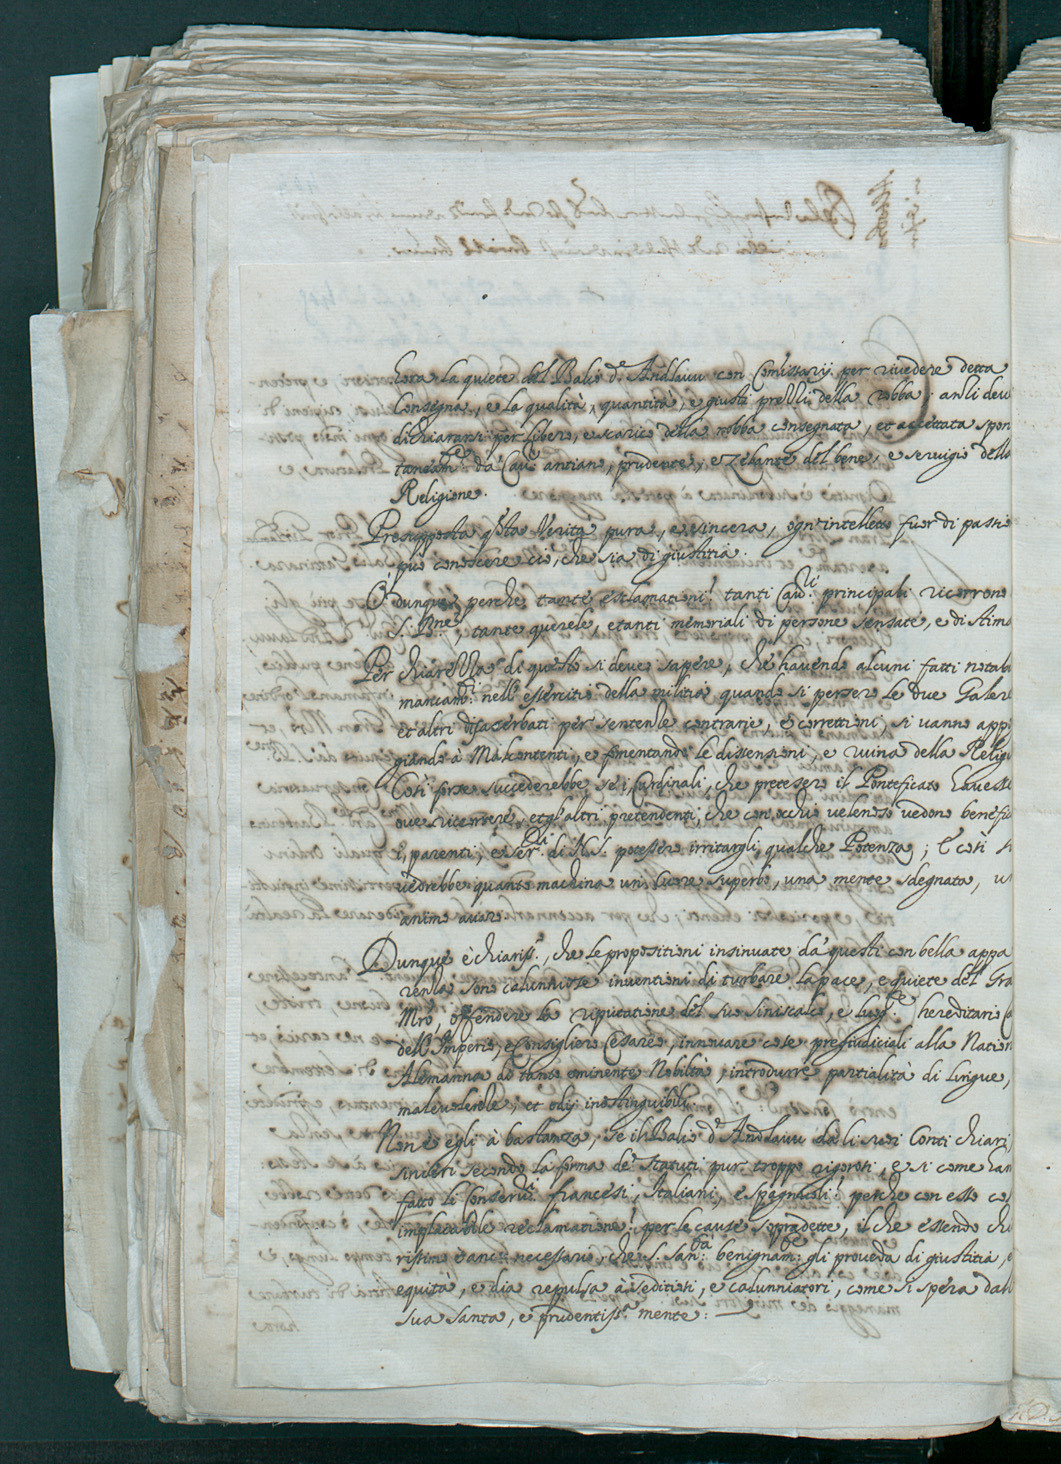 hora la quiete del Balio d'Andlauu con Comissarij per rivedere detta
Consegna, e la qualità, quantità, e giusti prezzi della robba; anzi deve
dichiararsi per libero, e scarico della robba consegnata, et accettata spon
taneam.te da Cav.re antiano, prudente, e zelante del bene, e servigio della
Religione.
Presupposta q.sta verità pura, e sincera, ogn'intelletto fuor di passio
può conoscere ciò, che sia di giustitia.
O dunque perche tante esclamationi! tanti Cav.ri principali ricorrono
S. B.ne, tante querele, e tanti memoriali di persone sensate, e di stima
Per chiarezza di questo si deve sapere, che havendo alcuni fatti notabi
mancam.ti nell'essercitio della militia quando si persero le due Galere
et altri disacerbati per sentenze contrarie, e correttioni, si vanno appi
giando à Malcontenti, e fomentando le dissensioni, e ruina della Relig
Così forse succederebbe se i Cardinali, che pretesero il Pontificato havesse
ove ricorrere, et gl'altri pretendenti, che con occhio velenoso vedono benefic
i parenti, e ser.ri di N. S. potessero irritargli qualche Potenza; E così si
vedrebbe quanto machina un cuore superbo, una mente sdegnata, un
animo avaro.
Dunque è chiariss.o, che le propositioni insinuate da questi con bella appa
renza sono calunniose inventioni di turbare la pace, e quiete del Gra
Mro, offendere la riputatione del suo siniscalco, e Luog.te hereditario
dell'Imperio, e Consigliero Cesareo, innovare cose pregiudiciali alla Nation
Alemanna di tanto eminente Nobiltà, introdurre partialità di Lingue,
malevolenze, et odij inestinguibili.
Non è egli à bastanza, se il Balio d'Andlauu dà li suoi Conti chiari,
sinceri secondo la forma de' statuti pur troppo rigorosi, e si come han
fatto li Conserv.ri francesi, Italiani, e spagnuoli! perche con esso co
implacabile reclamatione! per le cause sopradette, il che essendo chi
rissimo è anco necessario, che S. San.tà benignam.te gli proveda di giustitia, e
equità, e dia repulsa à seditiosi, e calunniatori, come si spera dalla
sua santa, e prudentiss.a mente.